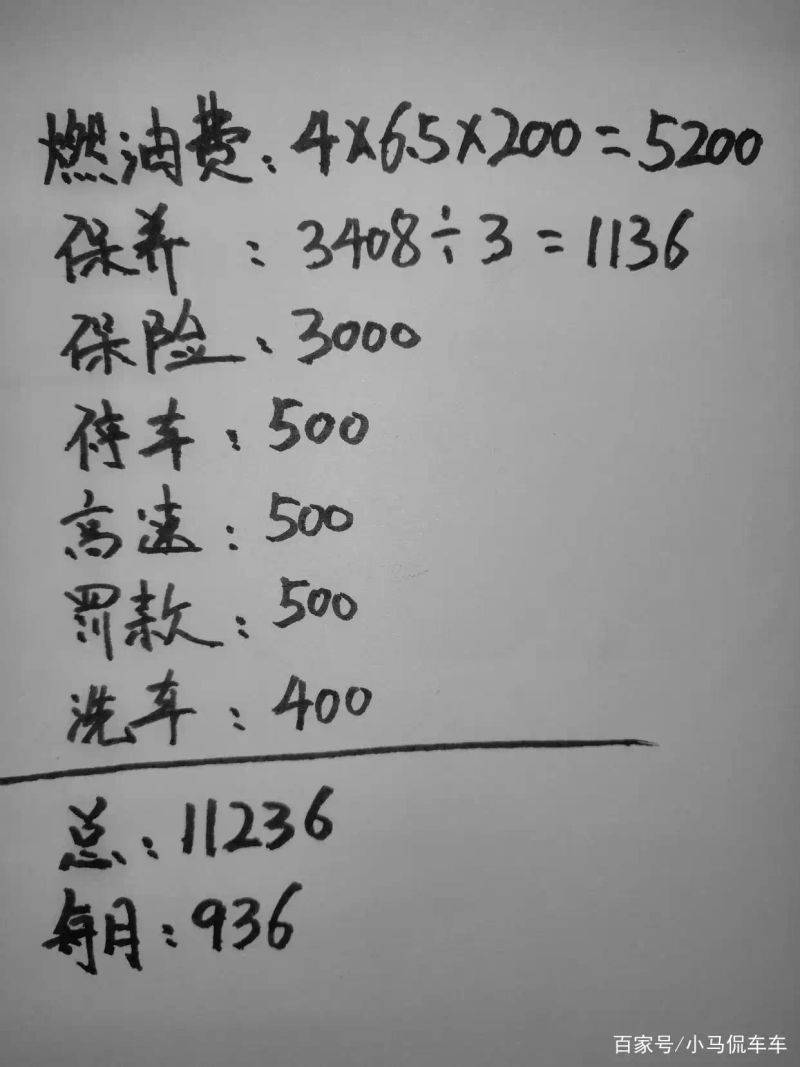 燃油费：4×6.5×200=5200
保养：3408÷3=1136
保险：3000
停车：500
高速：500
罚款：500
洗车：400
总：11236
每月：936
百家号/小马侃车车